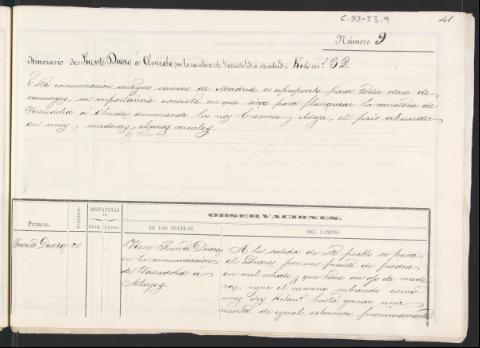 C.33-33.9
41
Número 9
Itinerario de Puente Duero á Olmedo, en la antiva de Valladolid á Madrid; Kilom.s 32.
Esta comunicacion antiguo camino de Madrid es á proposito para toda clase de
carruages; su importancia consiste en que sirve para flanquear la carretera de
Valladolid á Olmedo dominando los rios Eresma y Adaja, el pais abunda
en vino, maderas y algunos cereales.
OBSERVACIONES.
PUEBLOS.
Vecinos.
DISTANCIAS
EN
KILM. LEGS.
DE LOS PUEBLOS.
DEL CAMINO.
Puente Duero
Vease Puente Duero
en la comunicacion
de Valladolid á
A la salida de este pueblo se pasa
el Duero por un puente de piedra
en mal estado y que tiene un ojo de made
ra; sigue el camino subiendo como
muy diez Kilom.s hasta ganar una
meseta de igual estension proximamente